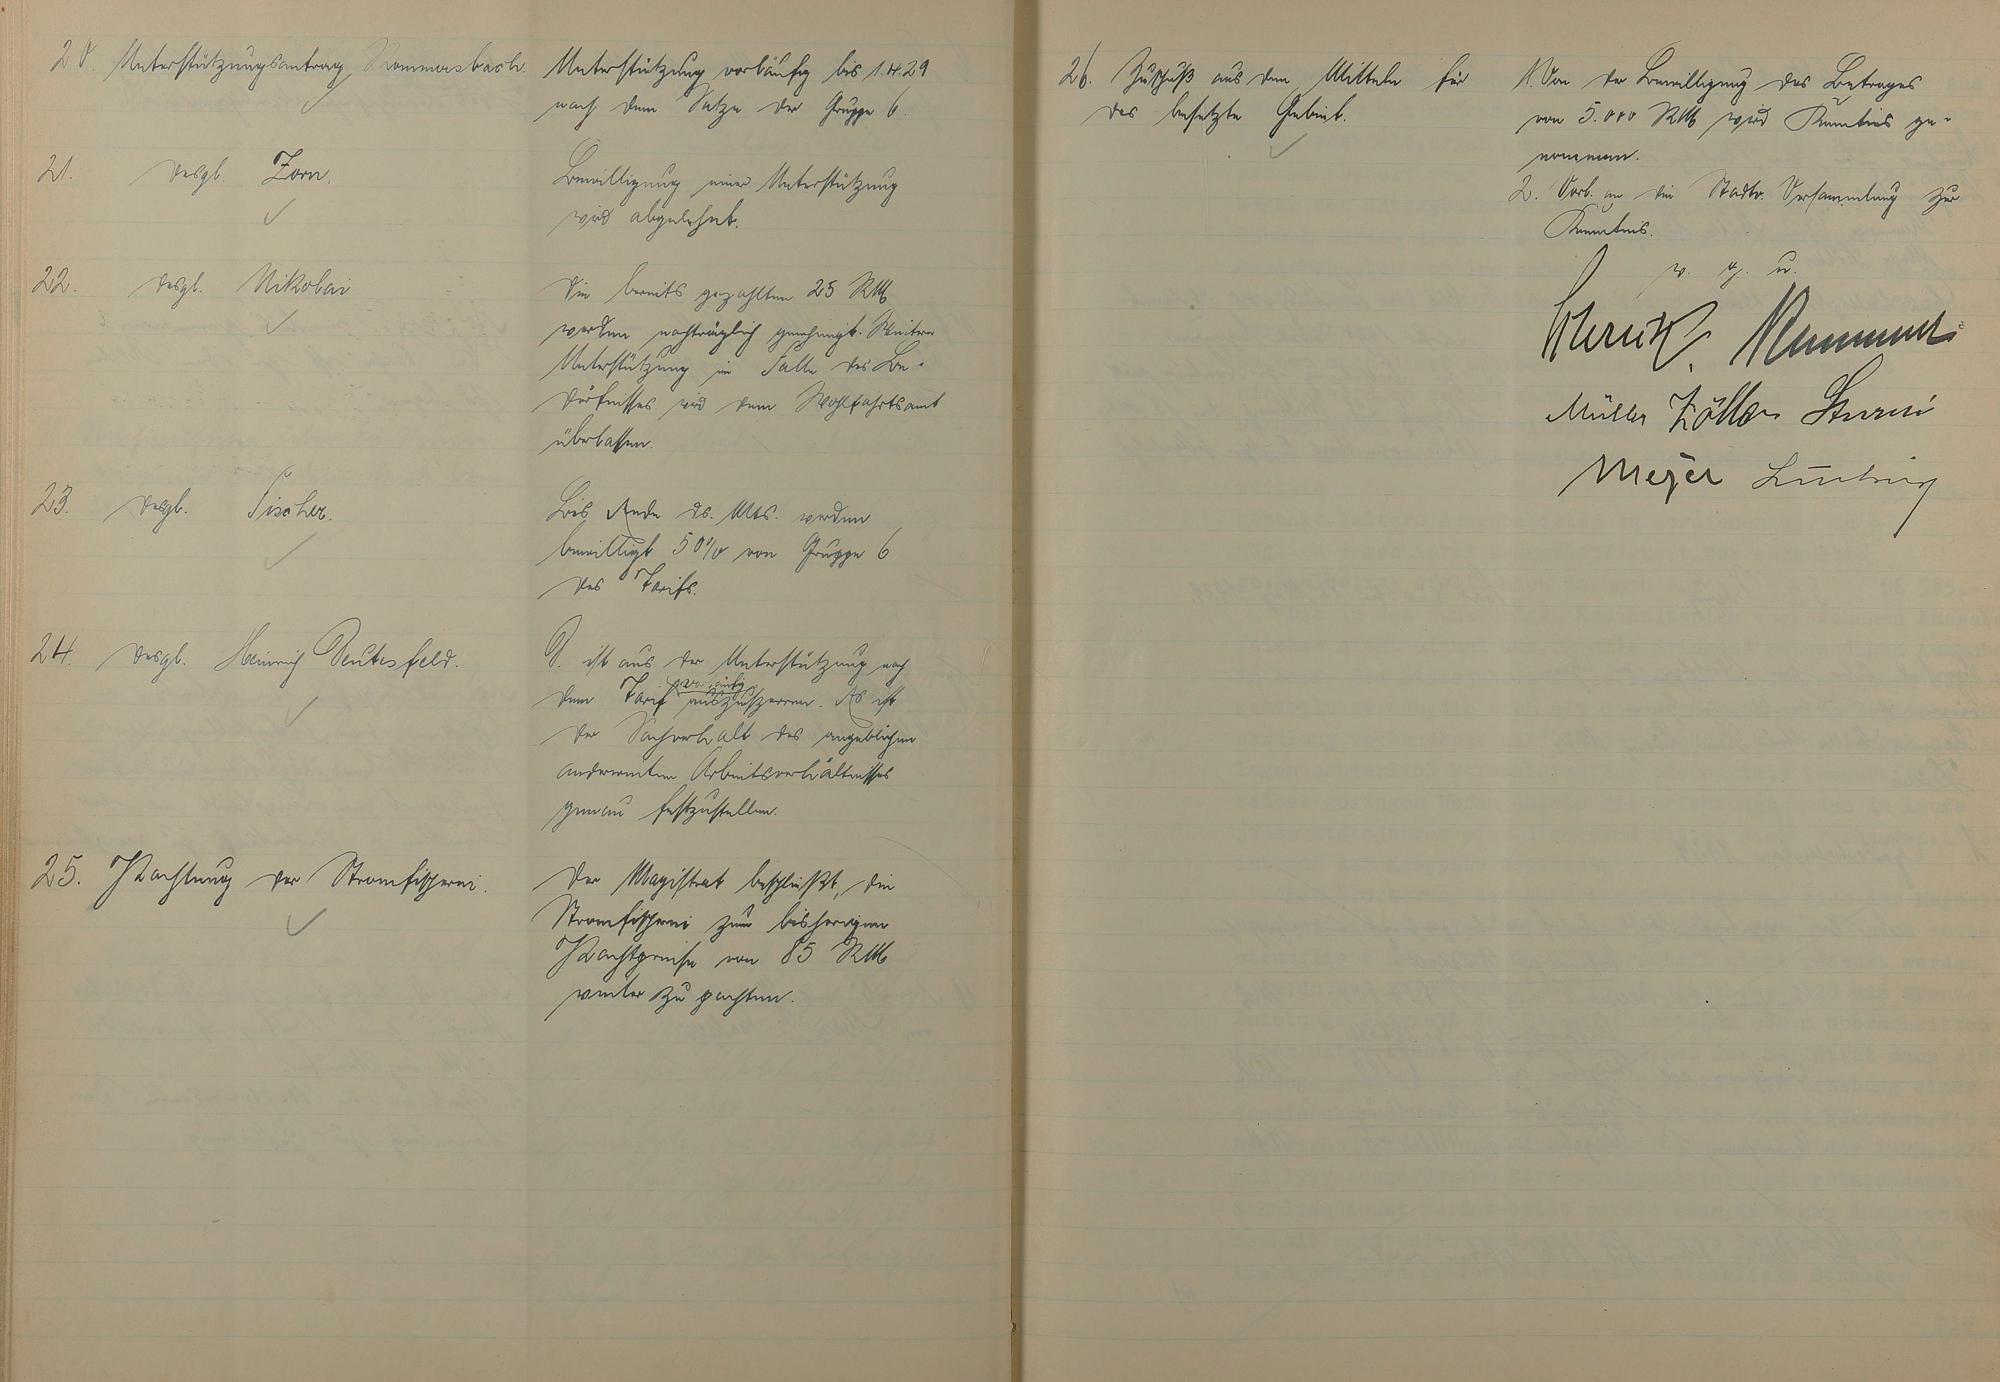 20. Unterstützungsantrag Kommersbach.
Unterstützung vorläufig bis 1.4.29
nach dem Satze der Gruppe 6.
21. desgl. Zorn.
Bewilligung einer Unterstützung
wird abgelehnt.
22. desgl. Nikolai
Die bereits gezahlten 25 RM
werden nachträglich genehmigt. Weitere
Unterstützung im Falle des Be-
dürfnisses wird dem Wohlfahrtsamt
überlassen.
23. desgl. Fischer.
Bis Ende ds. Mts. werden
bewilligt 50% von Gruppe 6
des Tarifs.
24. desgl. Heinrich Deutesfeld.
D. ist aus der Unterstützung nach
vorläufig
dem Tarif auszusperren. Es ist
der Sachverhalt des angeblichen
anderweiten Arbeitsverhältnisses
genau festzustellen.
25. Pachtung der Stromfischerei.
Der Magistrat beschließt, die
Stromfischerei zum bisherigen
Pachtpreise von 85 RM
weiter zu pachten.
26. Zuschuß aus den Mitteln für
das besetzte Gebiet.
1. Von der Bewilligung des Betrages
von 5.000 RM wird Kenntnis ge-
nommen.
2. Vorl. an die Stadtv. Versammlung zur
Kenntnis.
v. g. u.
Müller Zöller
Meyer Ludwig